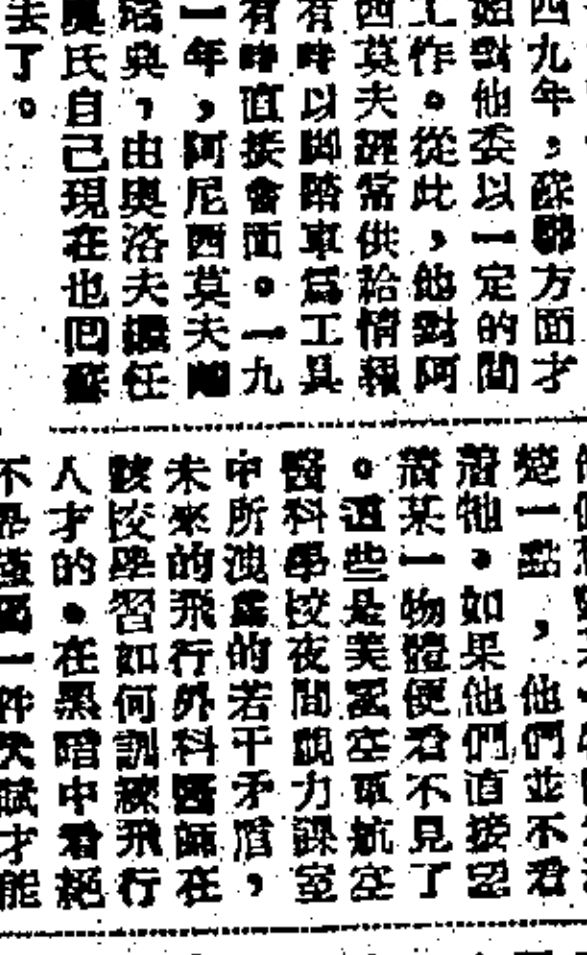 四九年，蘇聯方面才
始對他委以一定的間
工作。從此，他對阿
西莫夫經常供給情報
有時以脚踏車爲工具
有時直接會面。一九
一年，阿尼西莫夫離
典，由奥洛夫擔任
奥氏自己現在也回蘇
去了。
楚一點，他們並不看
着牠。如果他們直接望
着某一物體便看不見了
。這些是美國空軍航空
醫科學校夜間視力課室
中所洩露的若干矛盾，
未來的飛行外科醫師在
該校學習如何訓練飛行
人才的。在黑暗中看絕
不是 一件天賦才能